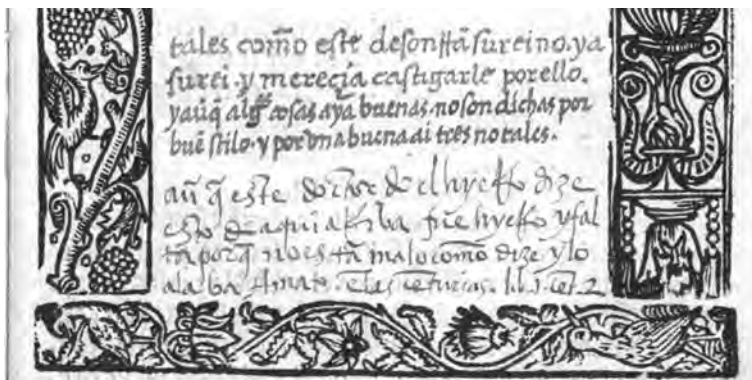 tales com̃o este desonrrã su reino. ya
su rei. y mereçia castigarle por ello.
y aũq̃ alg̃ cosas aya buenas. no son dichas por
buẽ stilo. y por vna buena ai tres no tales.
aũ q̃ este doctor del hyerro dize
esto de aqui arriba fue hyerro y fal
ta porq̃ no es tã malo com̃o dize y lo
alaba e las cẽturias. cẽt. 2